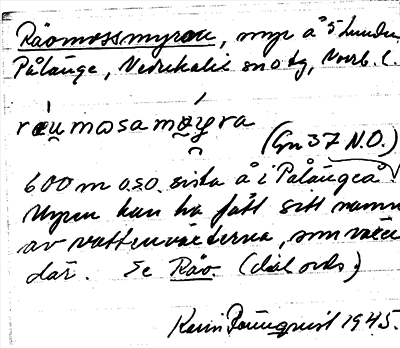 Råomossmyran, myr å S Lunden,
Pålänge, Nederkalix sn o tg, Norrb. l.
råumosamøyra
(Gn 37 N.O.)
600 m o.s.o. sista å i Pålängeå
Myren kan ha fått sitt namn
av vattenväxterna, som växer
där. Se Råo. (dial. ords.)
Karin 1945.